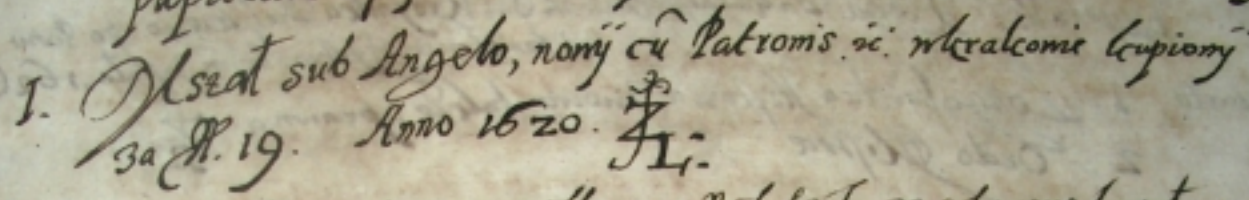 I. Mszał sub Angelo, nowÿ cũ Patronis .ic. wkrakowie kupionÿ
za fl. 19. Anno 1620.